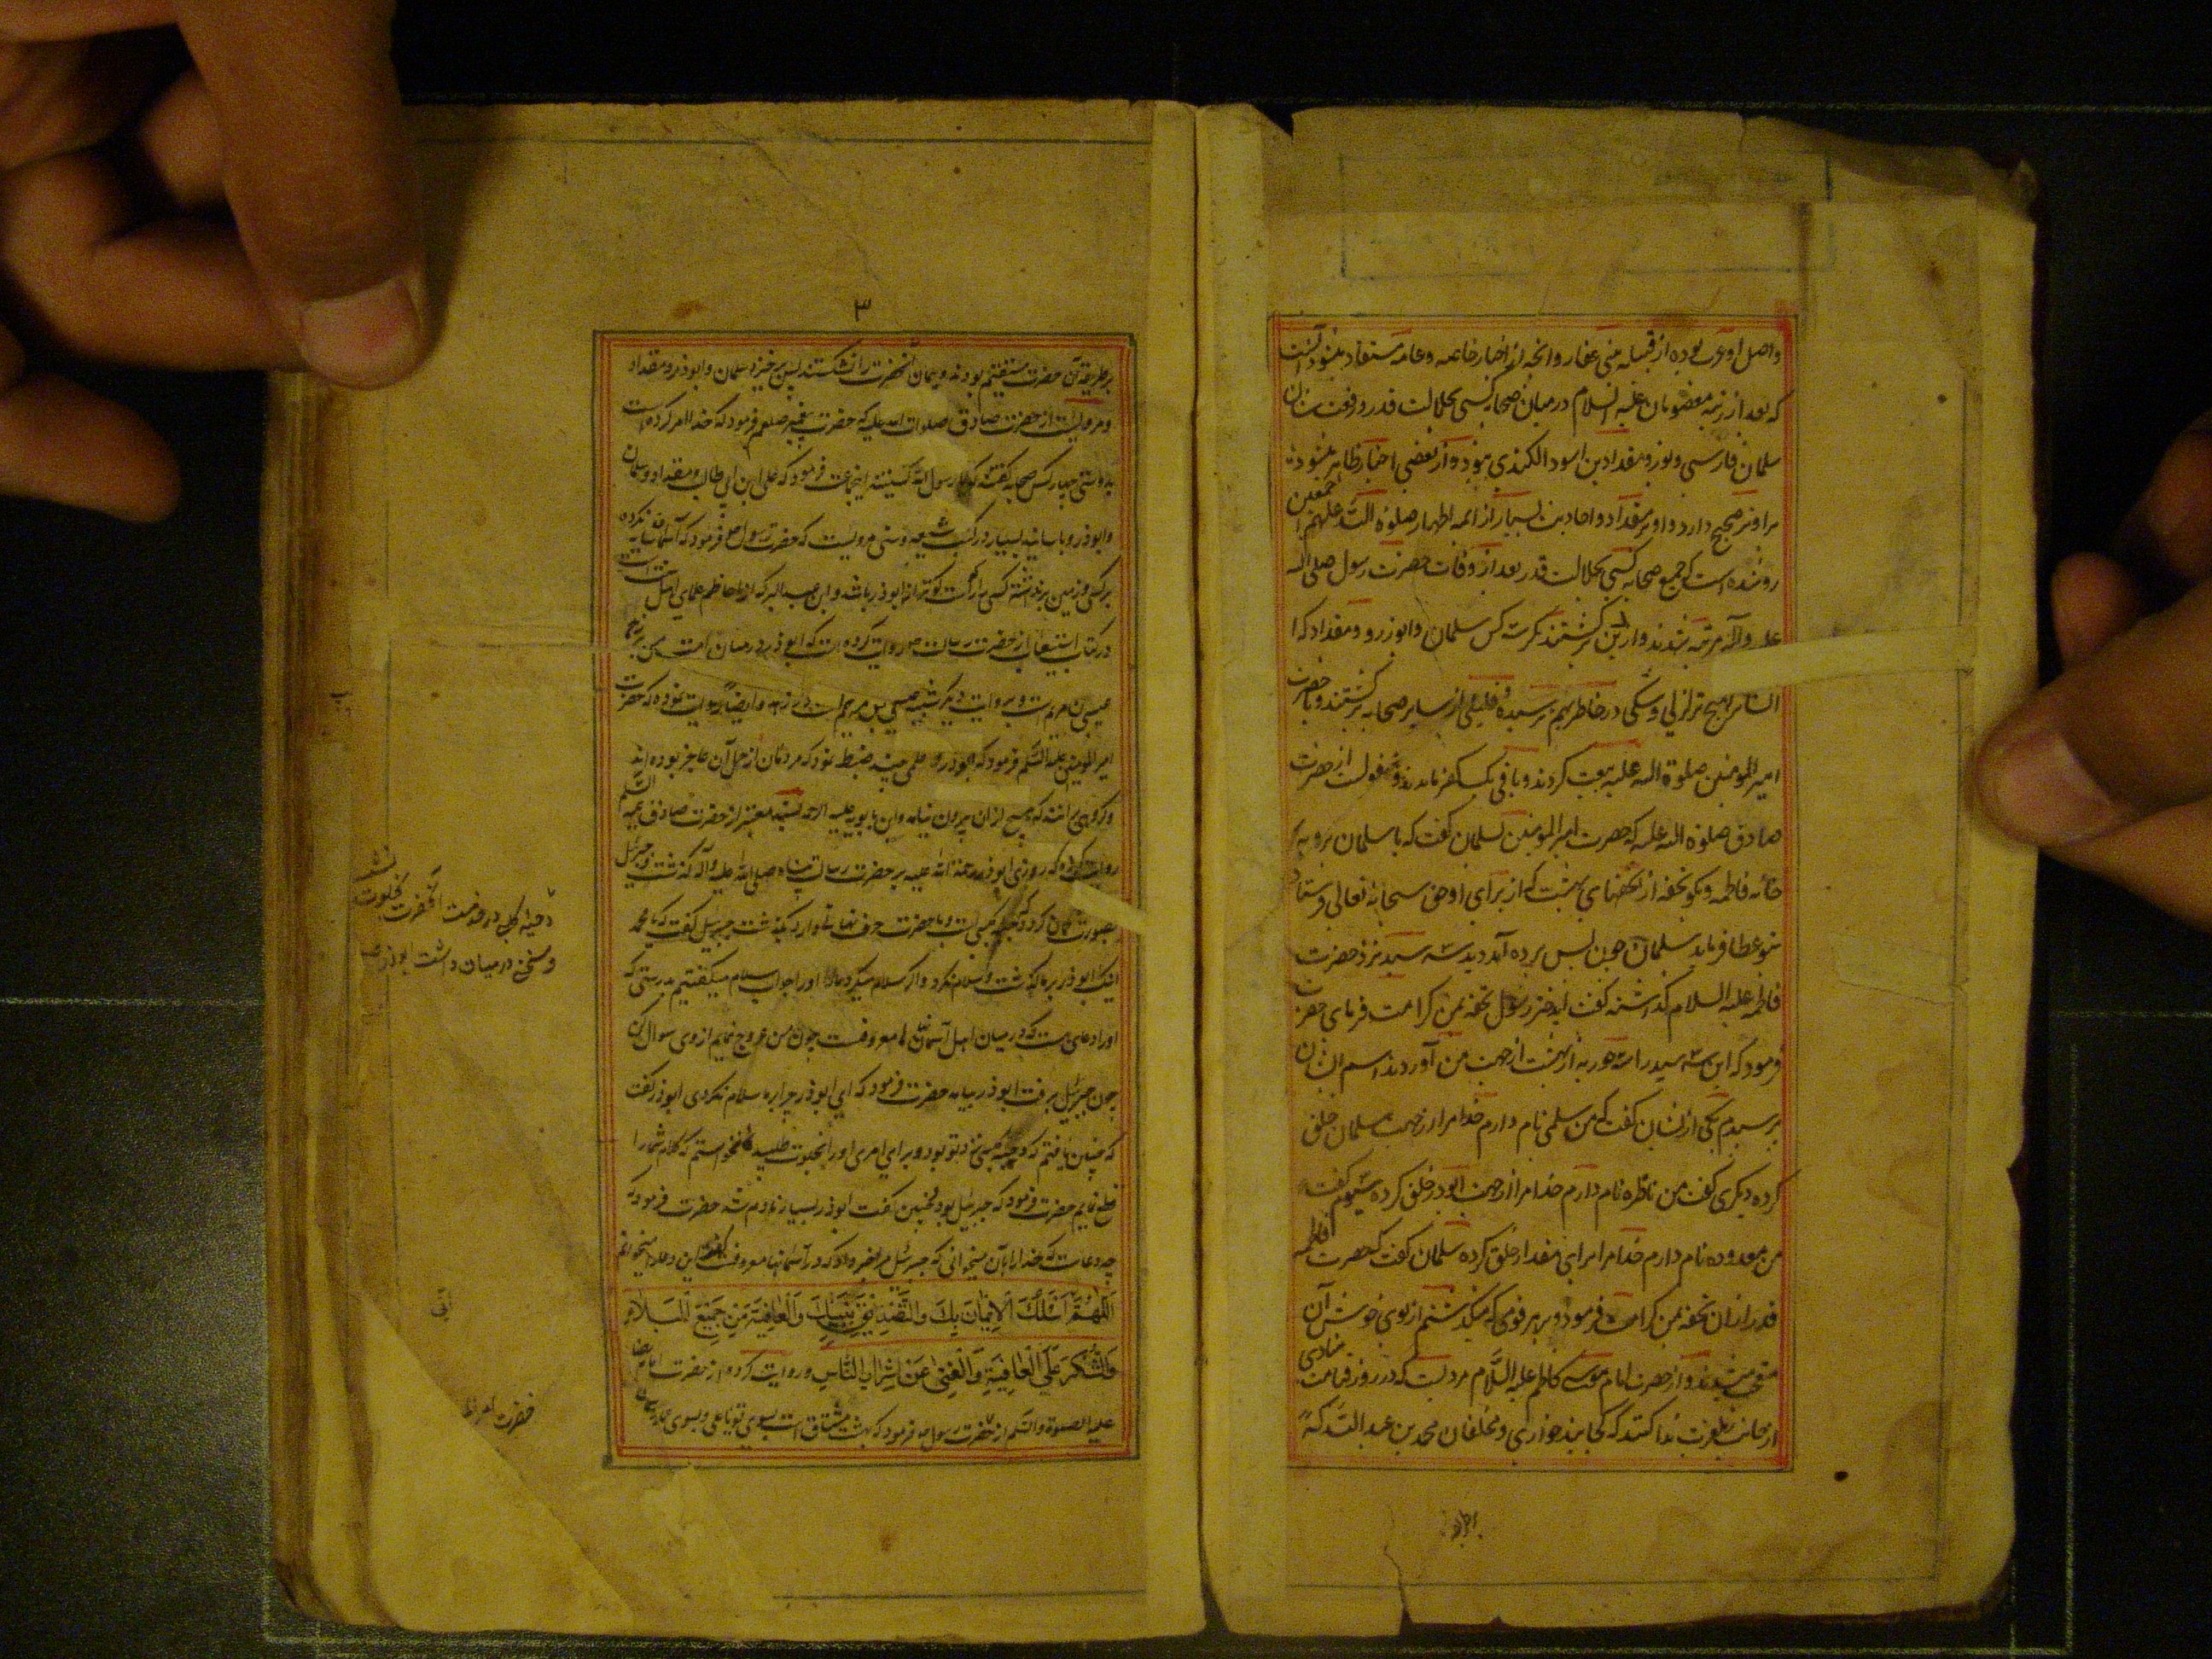 واصل او عرب بوده از قبیله بنی غفار و آنچه از اخبار خاصه و عامه مستفاد میشود آنست
که بعد از رتبه معصومان علیه السلام در میان صحابه کسی بجلالت قدر و رفعت شان
سلمان فارسی و ابوذر و مقداد بن اسود الکندی نبود و از بعضی اخبار ظاهر میشود که
صحیح دارد و او بر مقداد و احادیث بسیار از ایمه اطهار صلوة الله علیهم اجمعین
که جمیع صحابه کسی بجلالت قدر بعد از وفات حضرت رسول صلی الله
علیه وآله مرتد شدند و از دین برگشتند مگر سه کس سلمان و ابوذر و مقداد که
الناس هیچ تزلزلی و شکی در خاطر بهم نرسید و قلیلی از سایر صحابه برگشتند و با حضرت
امیرالمومنین صلوة الله علیه بیعت کردند و باقی بکفر ماندند و منقولست از حضرت
صادق صلوة الله علیه که حضرت امیرالمومنین بسلمان گفت که یا سلمان برو به
خانه فاطمه و بگو تحفه از تحفهای بهشت که از برای او حق سبحانه تعالی فرستاده
بتو عطا فرماید سلمان چون بس پرده آمد دید سه سبد نزد حضرت
فاطمه علیه السلام گذاشته گفت ایدختر رسول تحفه بمن کرامت فرمای حضرت
فرمود که این سه سبد را سه حوریه از بهشت از جهت من آوردند اسم ایشان
پرسیدم یکی از ایشان گفت که من سلمی نام دارم خدا مرا از جهت سلمان خلق
کرده دیگری گفت من ناظره نام دارم خدا مرا از جهت ابوذر خلق کرده سیوم گفت
من مقدوده نام دارم خدا مرا برای مقداد خلق کرده سلمان گفت که حضرت فاطمه
قدر از ان تحفه بمن کرامت فرمود و بر هر قومی که میگذشتم از بوی خوش آن
متعجب میشدند و از حضرت امام موسی کاظم علیه السلام مرویست که در روز قیامت منادی
از جانب رب العزت ندا کند که کجایند حواری و مخلصان محمد بن عبدالله که
۳
بر طریقه آن حضرت مستقیم بودند و پیمان آنحضرت را نشکستند پس برخیزد سلمان و ابوذر و مقداد
و مرویست از حضرت صادق صلوات الله علیه که حضرت پیغمبر صلعم فرمود که خدا امر کرده است
بدوستی چهار کس صحابه گفتند که یا رسول الله کیستند اینجماعت فرمود که علی ابن ابی طالب و مقداد و سلمان
و ابوذر و باسانید بسیار در کتب شیعه و سنی مرویست که حضرت رسول فرمود که آسمان سایه نکرده
بر کسی و زمین بر نداشته کسی را که راست گوتر از ابوذر باشد و ابن عبدالبر که از اعاظم علمای اهل سنت است
در کتاب استیعاب از حضرت رسالت روایت کرده است که ابوذر در میان امت من بزهد
عیسی بن مریم است و بروایت دیگر شبیه عیسی بن مریم است در زهد و ایضا روایت نموده که حضرت
امیرالمومنین علیه السلم فرمود که ابوذر علمی چند ضبط نمود که مردمان از حمل آن عاجز بوده اند
و گرهی بر ان زد که هیچ از ان بیرون نیامد و ابن بابویه علیه الرحمه بسند معتبر از حضرت صادق علیه السلم
روایت کرده که روزی ابوذر رحمة الله علیه بر حضرت رسالت پناه صلی الله علیه وآله گذشت و جبرئیل
بصورت دحیه کلبی در خدمت آنحضرت بخلوت
و سخن در میان داشت ابوذر
گمان کرد که دحیه کلبی است و با حضرت حرف نهانی دارد بگذشت جبرئیل گفت که یا محمد
اینک ابوذر بر ما گذشت و سلام نکرد و اگر سلام میکرد ما او را جواب سلام میگفتیم بدرستی که
او را دعای هست که در میان اهل آسمانها معروفست چون من عروج نمایم از وی سوال کن
چون جبرئیل برفت ابوذر بیامد حضرت فرمود که ای ابوذر چرا بر ما سلام نکردی ابوذر گفت
که چنین یافتم که دحیه کلبی نزد تو بود و برای امری او را بخلوت طلبیده نخواستم که کلام شما را
قطع نمایم حضرت فرمود که جبرئیل بود و چنین گفت ابوذر بسیار نادم شد حضرت فرمود که
چه دعاست که خدا را بآن میخوانی که جبرئیل مرا خبر داد که در آسمانها معروفست گفت این دعا را میخوانم
اَللّٰهُمَّ اَسْئَلُكَ اَلْاِیْمٰانَ بِكَ وَالتَّصْدِیْقَ بِنَبِیِّكَ وَالْعٰافِیَةَ مِنْ جَمِیْعِ الْبَلٰاءِ
وَالشُّكْرَ عَلَی الْعٰافِیَةِ وَالْغِنیٰ عَنْ شِرٰارِ النّٰاسِ و روایت کرده از حضرت امام رضا
علیه الصلوة والسلم از حضرت رسول فرمود که بهشت مشتاق است بسوی تو یا علی و بسوی عمار